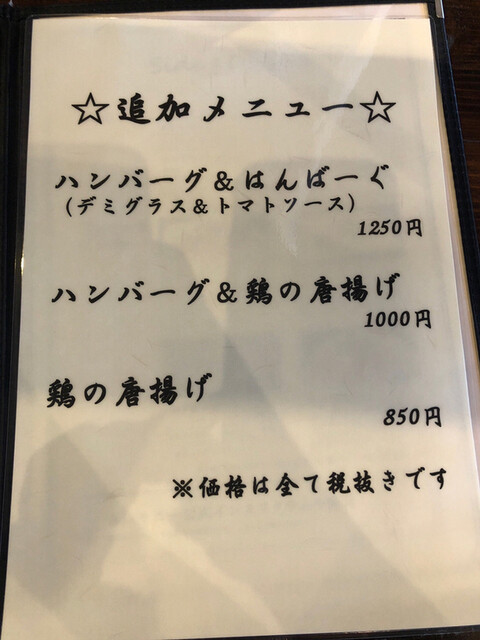 ☆追加メニュー☆
ハンバーグ&はんばーぐ
(デミグラス&トマトソース)
1250円
ハンバーグ&鶏の唐揚げ
1000円
鶏の唐揚げ
850円
※価格は全て税抜きです